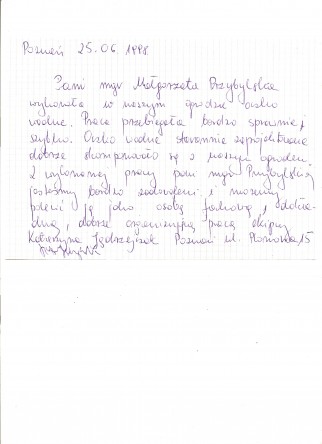 Poznań 25.06.1998
Pani mgr Małgorzata Przybylska
wykonała w naszym ogrodzie oczko
wodne. Praca przebiegała bardzo sprawnie i
szybko. Oczko wodne starannie zaprojektowane
dobrze skomponowało się z naszym ogrodem.
Z wykonanej pracy pani mgr Przybylskiej
jesteśmy bardzo zadowoleni i możemy
polecić ją jako osobę fachową, dokła-
dną, dobrze organizującą pracę ekipy
Katarzyna Jędrzejczak Poznań ul. 15